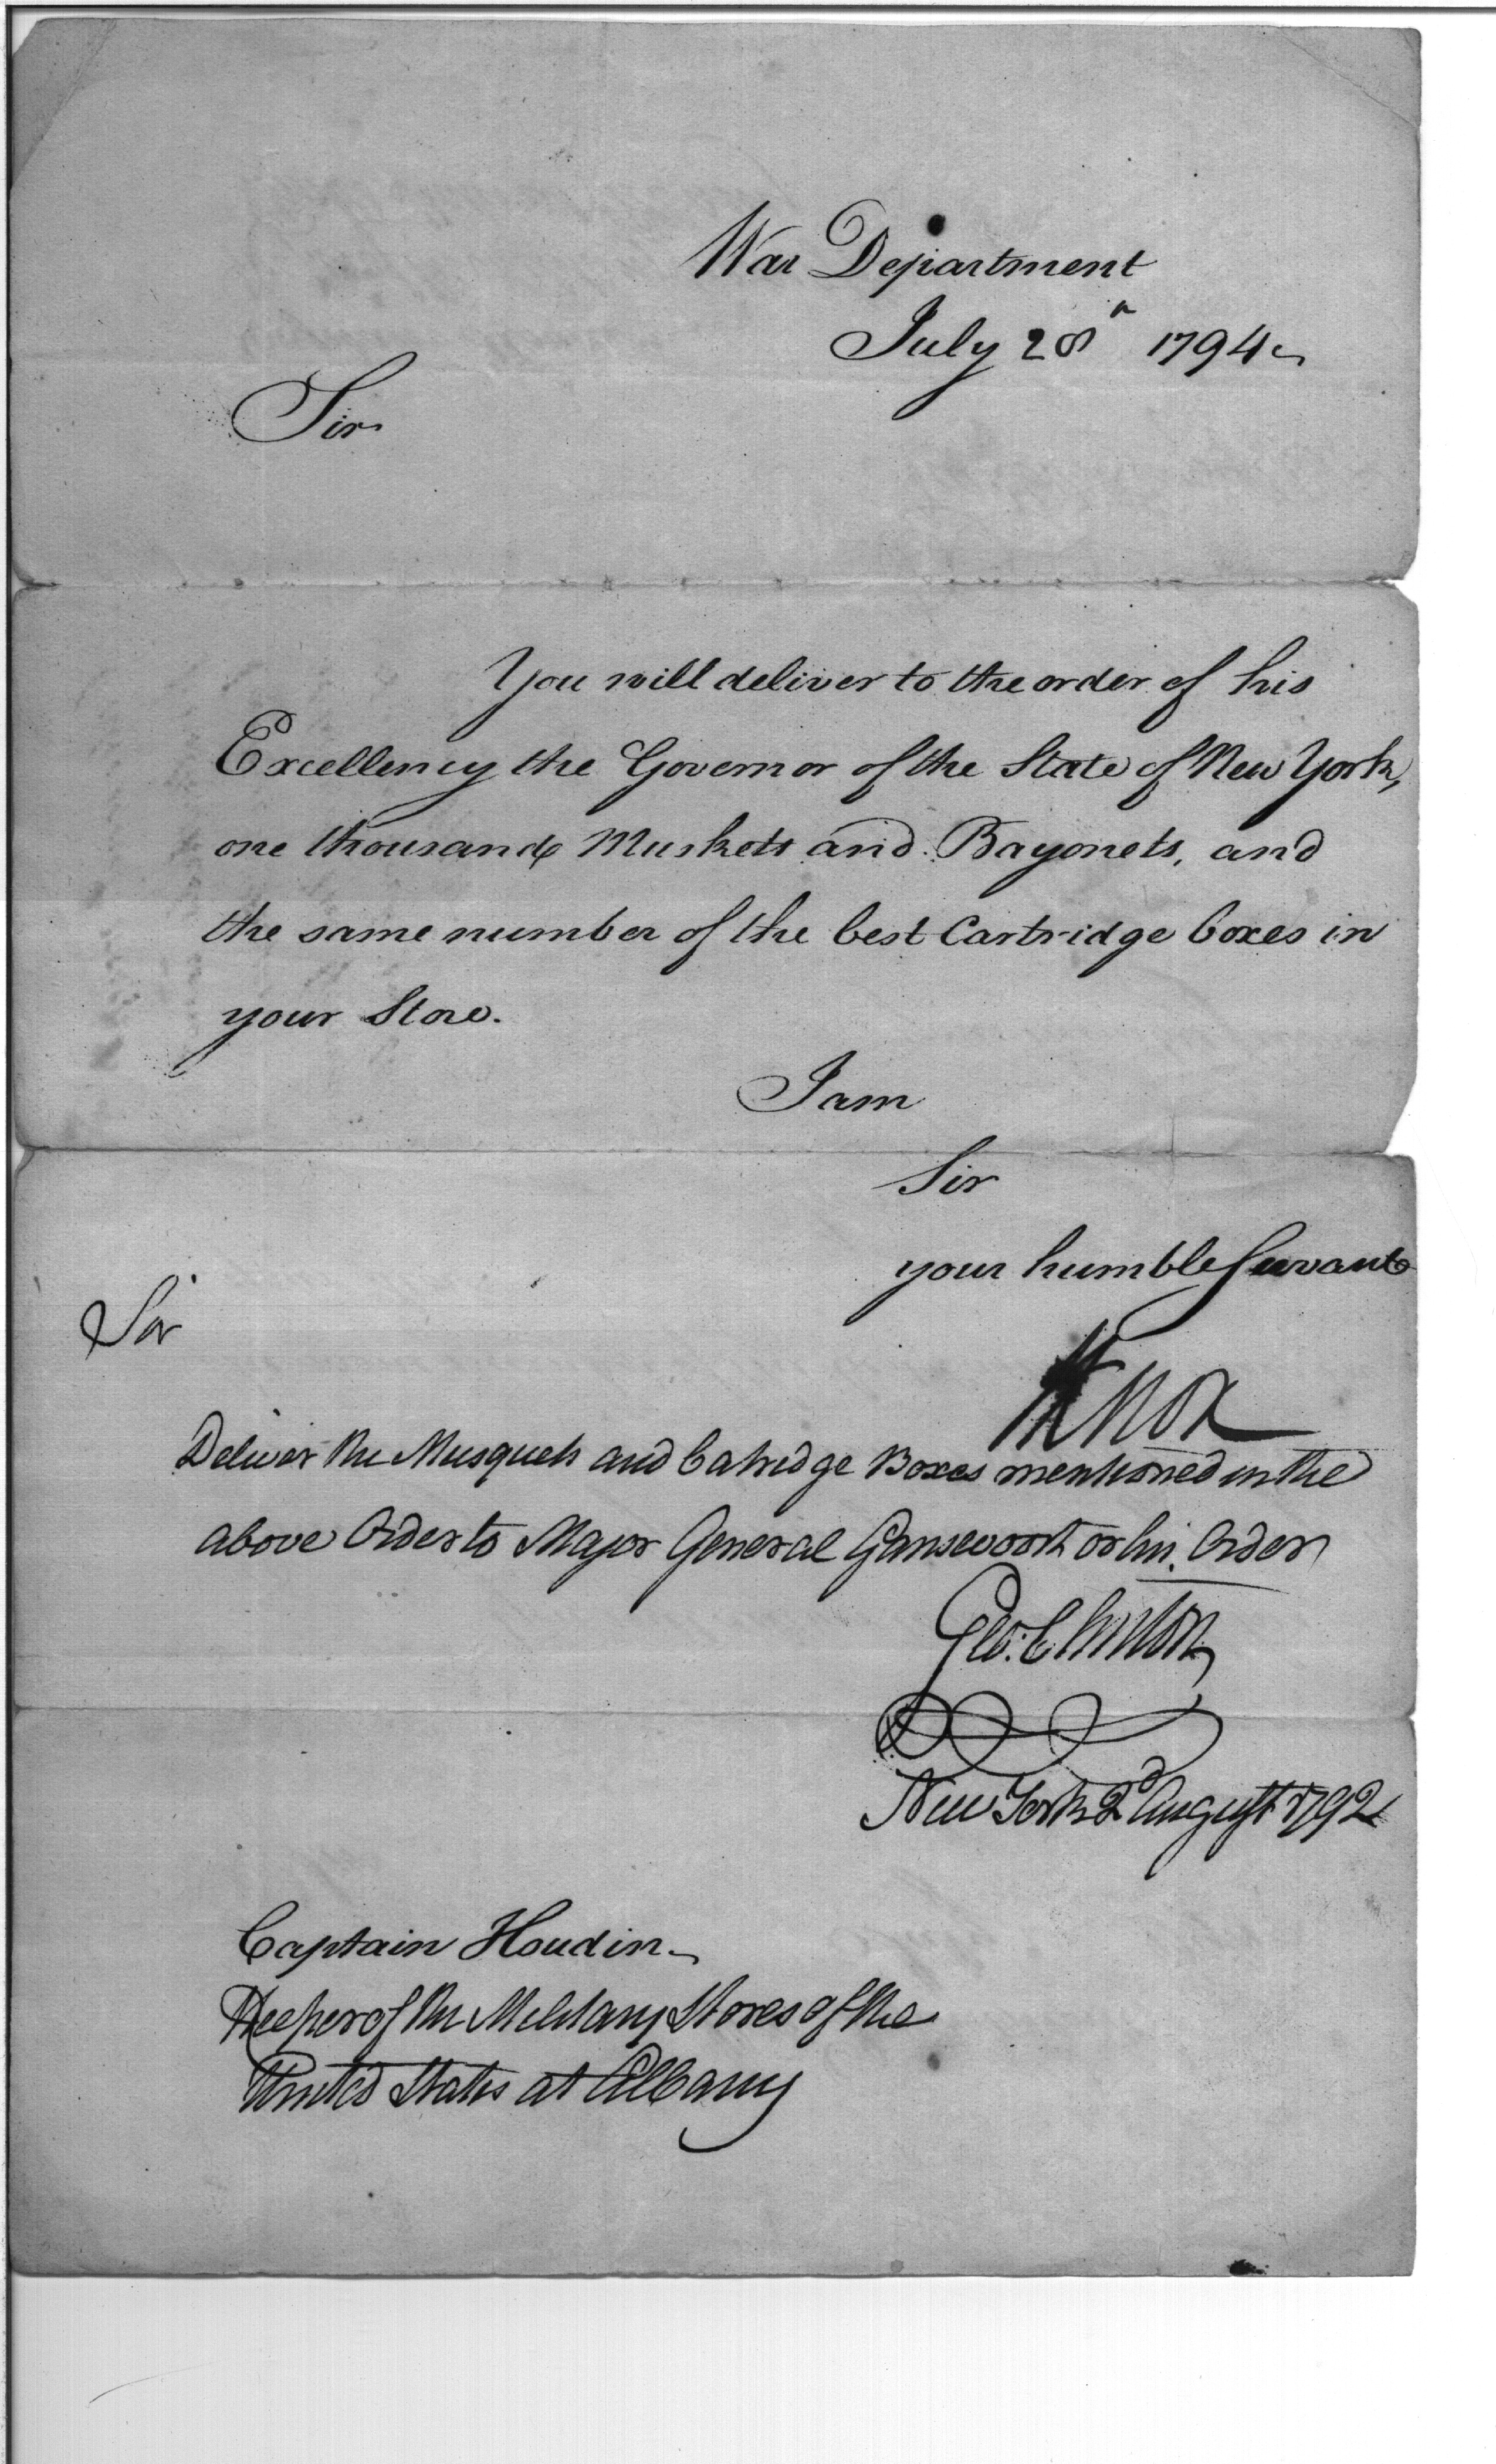 War Department
July 28th 1794
Sir
You will deliver to the order of his
Excellency the Governor of the State of New York,
one thousand Muskets and Bayonets, and
the same number of the best Cartridge boxes in
your Store.
I am
Sir
your humble Servant
HKnox
Sir
Deliver the Musquets and Catridge Boxes mentioned in the
above Order to Major General Gansevoort or his Order
Geo: Clinton
New York 2d August 1792
Captain Houdin
Keeper of the Military Stores of the
United States at Albany